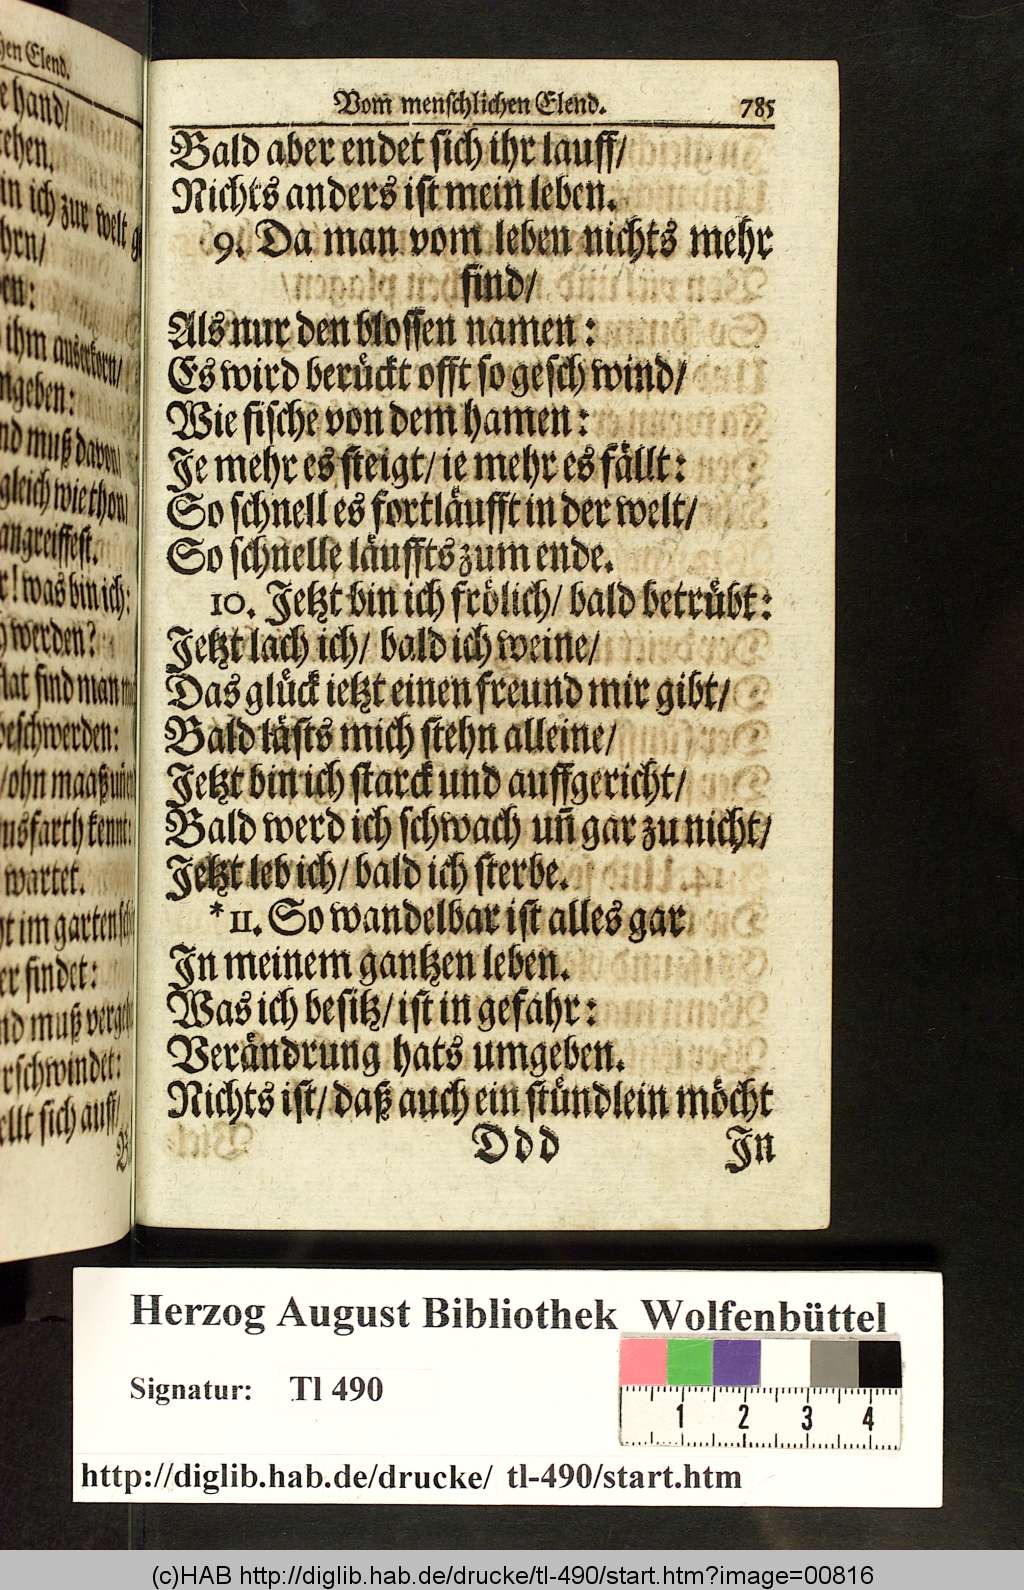 hen Elend.
e hand/
ehen.
in ich zur welt
hrn/
en:
ihm auserkorn/
ngeben:
nd muß davon/
gleich wie thon/
angreiffest.
r! was bin ich:
werden?
stat find man
beschwerden:
/ohn maaß
nsfarth kennt:
wartet.
ht im garten
er findet:
nd muß
rschwindet:
ellt sich auff/
B
Vom menschlichen Elend. 785
Bald aber endet sich ihr lauff/
Nichts anders ist mein leben.
9. Da man vom leben nichts mehr
find/
Als nur den blossen namen:
Es wird berückt offt so geschwind/
Wie fische von dem hamen:
Je mehr es steigt/ ie mehr es fällt:
So schnell es fortläufft in der welt/
So schnelle läuffts zum ende.
10. Jetzt bin ich frölich/ bald betrübt:
Jetzt lach ich/ bald ich weine/
Das glück ietzt einen freund mir gibt/
Bald läfts mich stehn alleine/
Jetzt bin ich starck und auffgericht/
Bald werd ich schwach uñ gar zu nicht/
Jetzt leb ich/ bald ich sterbe.
* 11. So wandelbar ist alles gar
In meinem gantzen leben.
Was ich besitz/ ist in gefahr:
Verändrung hats umgeben.
Nichts ist/ daß auch ein stündlein möcht
Ddd In
Herzog August Bibliothek Wolfenbüttel
Signatur: Tl 490
1 2 3 4
http://diglib.hab.de/drucke/ tl-490/start.htm
(c)HAB http://diglib.hab.de/drucke/tl-490/start.htm?image=00816